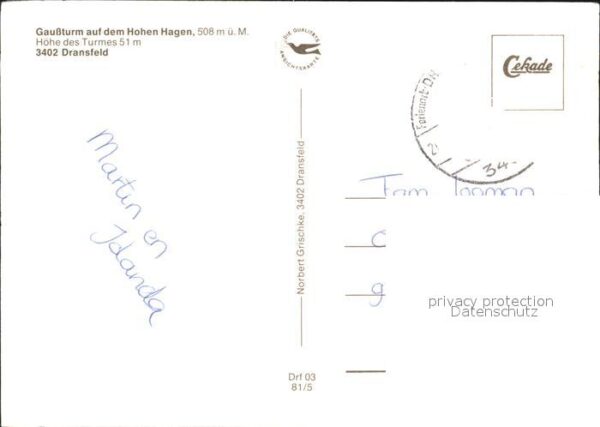 Gaußturm auf dem Hohen Hagen, 508 m ü. M.
Höhe des Turmes 51 m
3402 Dransfeld
DIE QUALITÄTS
ANSICHTSKARTE
Cekade
34-
Martin en
Jolanda
Norbert Grischke, 3402 Dransfeld
Fam
c
g
privacy protection
Datenschutz
Drf 03
81/5